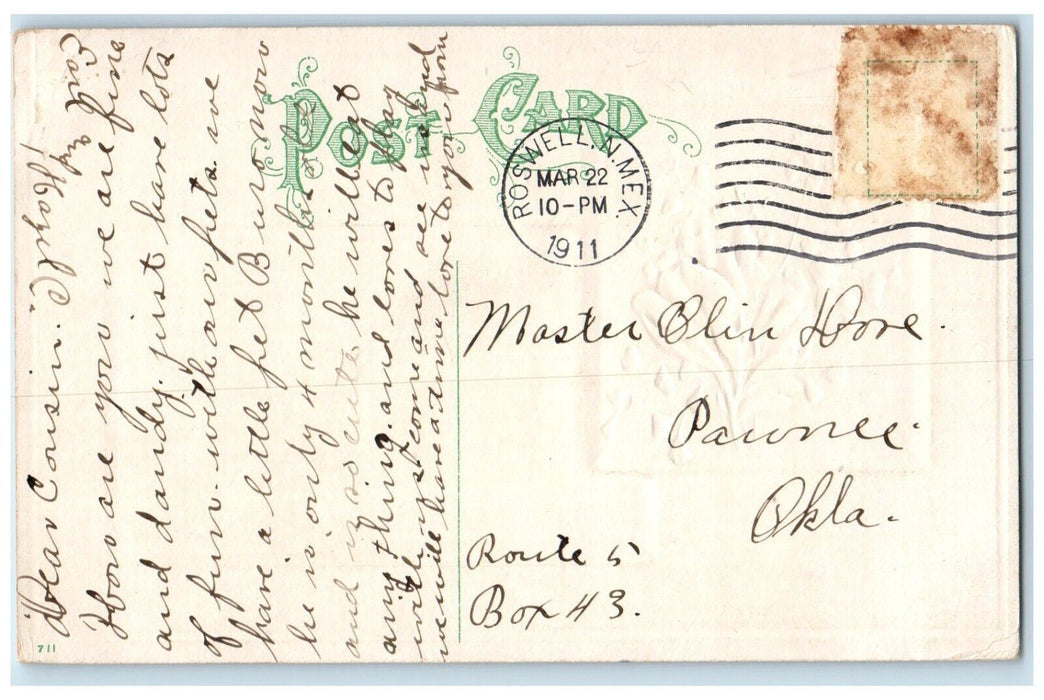 POST CARD
ROSWELL, N. MEX.
MAR 22
10-PM
1911
Master Olin Dove.
Pawnee.
Okla.
Route 5
Box 43.
Dear Cousin.
How are you we are fine
and dandy. just have lots
of fun. with our pets. we
have a little pet Burro now
he is only 4 months old
and is so cute he will eat
any thing. and loves to play
with us. come and see us and
we will have a time. love to you from
711